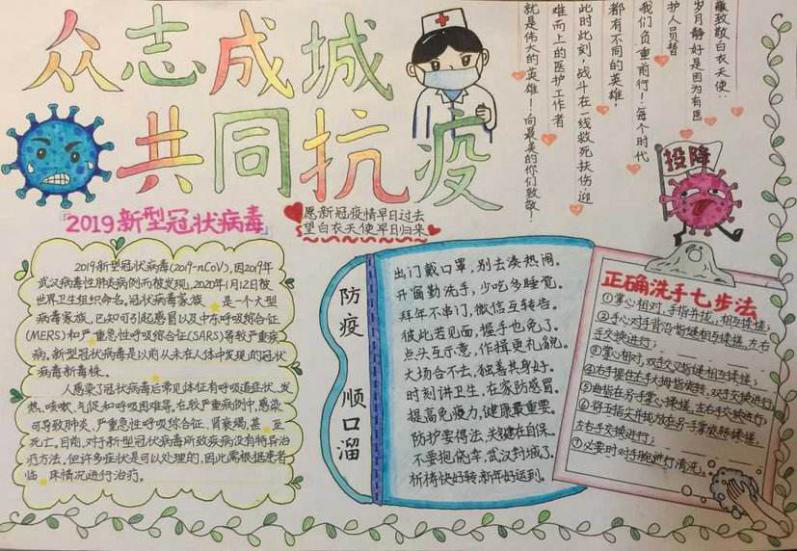 众志成城
共同抗疫
致敬白衣天使:
岁月静好是因为有医
护人员替
我们负重前行!每个时代
都有不同的英雄,
此时此刻,战斗在一线救死扶伤,迎
难而上的医护工作者
就是伟大的英雄!向最美的你们致敬!
投降
「2019新型冠状病毒」
愿新冠疫情早日过去
望白衣天使早日归来
2019新型冠状病毒(2019-nCoV),因2019年
武汉病毒性肺炎病例而被发现,2020年1月12日被
世界卫生组织命名。冠状病毒家族 是一个大型
病毒家族,已知可引起感冒以及中东呼吸综合征
(MERS)和严重急性呼吸综合征(SARS)等较严重疾
病。新型冠状病毒是以前从未在人体中发现的冠状
病毒新毒株。
人感染了冠状病毒后常见体征有呼吸道症状、发
热、咳嗽、气促和呼吸困难等。在较严重病例中,感染
可导致肺炎、严重急性呼吸综合征、肾衰竭,甚 至
死亡。目前,对于新型冠状病毒所致疾病没有特异治
疗方法。但许多症状是可以处理的,因此需根据患者
临 床情况进行治疗。
防疫 顺口溜
出门戴口罩,别去凑热闹。
开窗勤洗手,少吃多睡觉。
拜年不串门,微信互转告。
彼此若见面,握手也免了。
点头互示意,作揖更礼貌。
大场合不去,独善其身好。
时刻讲卫生,在家防感冒。
提高免疫力,健康最重要。
防护要得法,关键在自保。
不要抱侥幸,武汉封城了。
祈祷快好转,新年好运到。
正确洗手七步法
①掌心相对,手指并拢,相互揉搓;
②手心对手背沿指缝相互揉搓,左右
手交换进行;
③掌心相对,双手交叉指缝相互揉搓;
④右手握住左手大拇指旋转,双手交换进行;
⑤曲指在另手掌心揉搓,左右手交换进行;
⑥将五指尖并拢放在另手掌旋转揉搓,
左右手交换进行;
⑦必要时对手腕进行清洗。